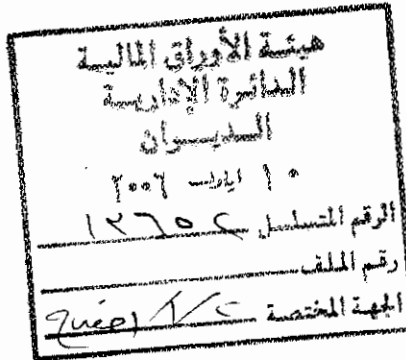 هيئة الأوراق المالية
الدائرة الإدارية
الديوان
١٠ ٢٠٠٦
الرقم المتسلسل ١٢٦٥٢
رقم الملف
الجهة المختصة